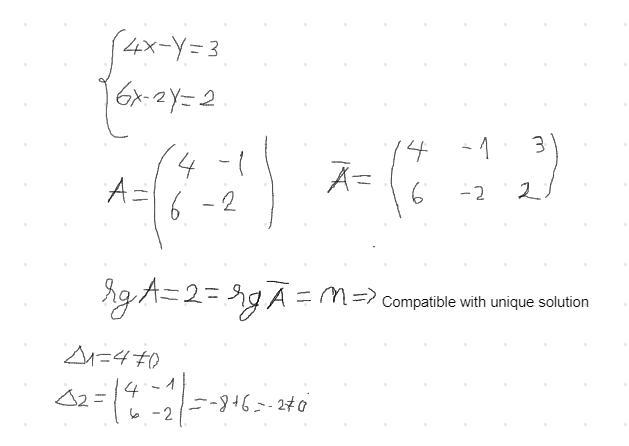 4x-y=3
6x-2y=2
A = (4 -1
6 -2) Ā = (4 -1 3
6 -2 2)
rg A = 2 = rg Ā = n => Compatible with unique solution
Δ1=4≠0
Δ2 = |4 -1
6 -2| = -8+6 = -2≠0